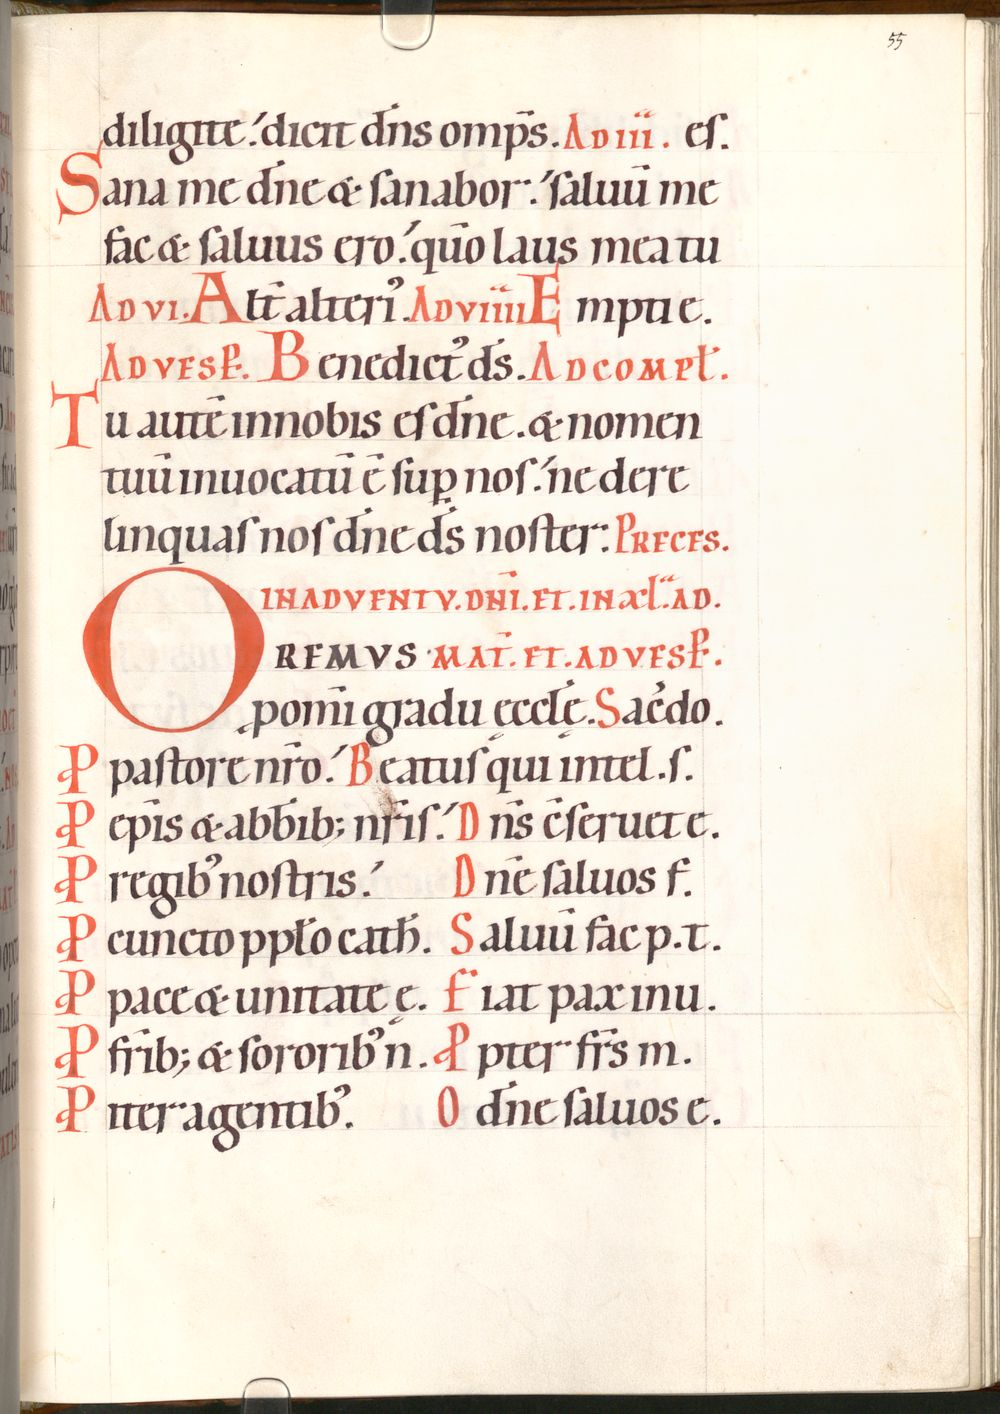 55
diligite. dicit dn̄s omp̄s. AD iii. es.
Sana me dn̄e & sanabor. saluū me
fac & saluus ero. quō laus mea tu
AD VI. Alt̄ alteriꝰ. AD VIIII Emptı e.
AD VESP̄. Benedictꝰ ds̄. AD COMPL̄.
Tu autē in nobis es dn̄e. & nomen
tuū inuocatū ē sup̱ nos. ne dere
linquas nos dn̄e ds̄ noster. PRECES.
IN ADVENTV. DN̄I. ET. IN XL̄. AD.
OREMVS MAT̄. ET. AD VESP̄.
ꝓ om̄i gradu ęccl̄ę. Sac̄do.
P pastore nr̄o. Beatus qui intel. s.
P ep̄is & abb̄ib; nr̄is. Dn̄s c̄seruet e.
P regibꝰ nostris. Dn̄e saluos f.
P cuncto ppl̄o cath̄. Saluū fac p. t.
P pace & unitate ę. Fiat pax in u.
P fr̄ib; & sororibꝰ n. Ppter fr̄s m.
P iter agentibꝰ. O dn̄e saluos e.